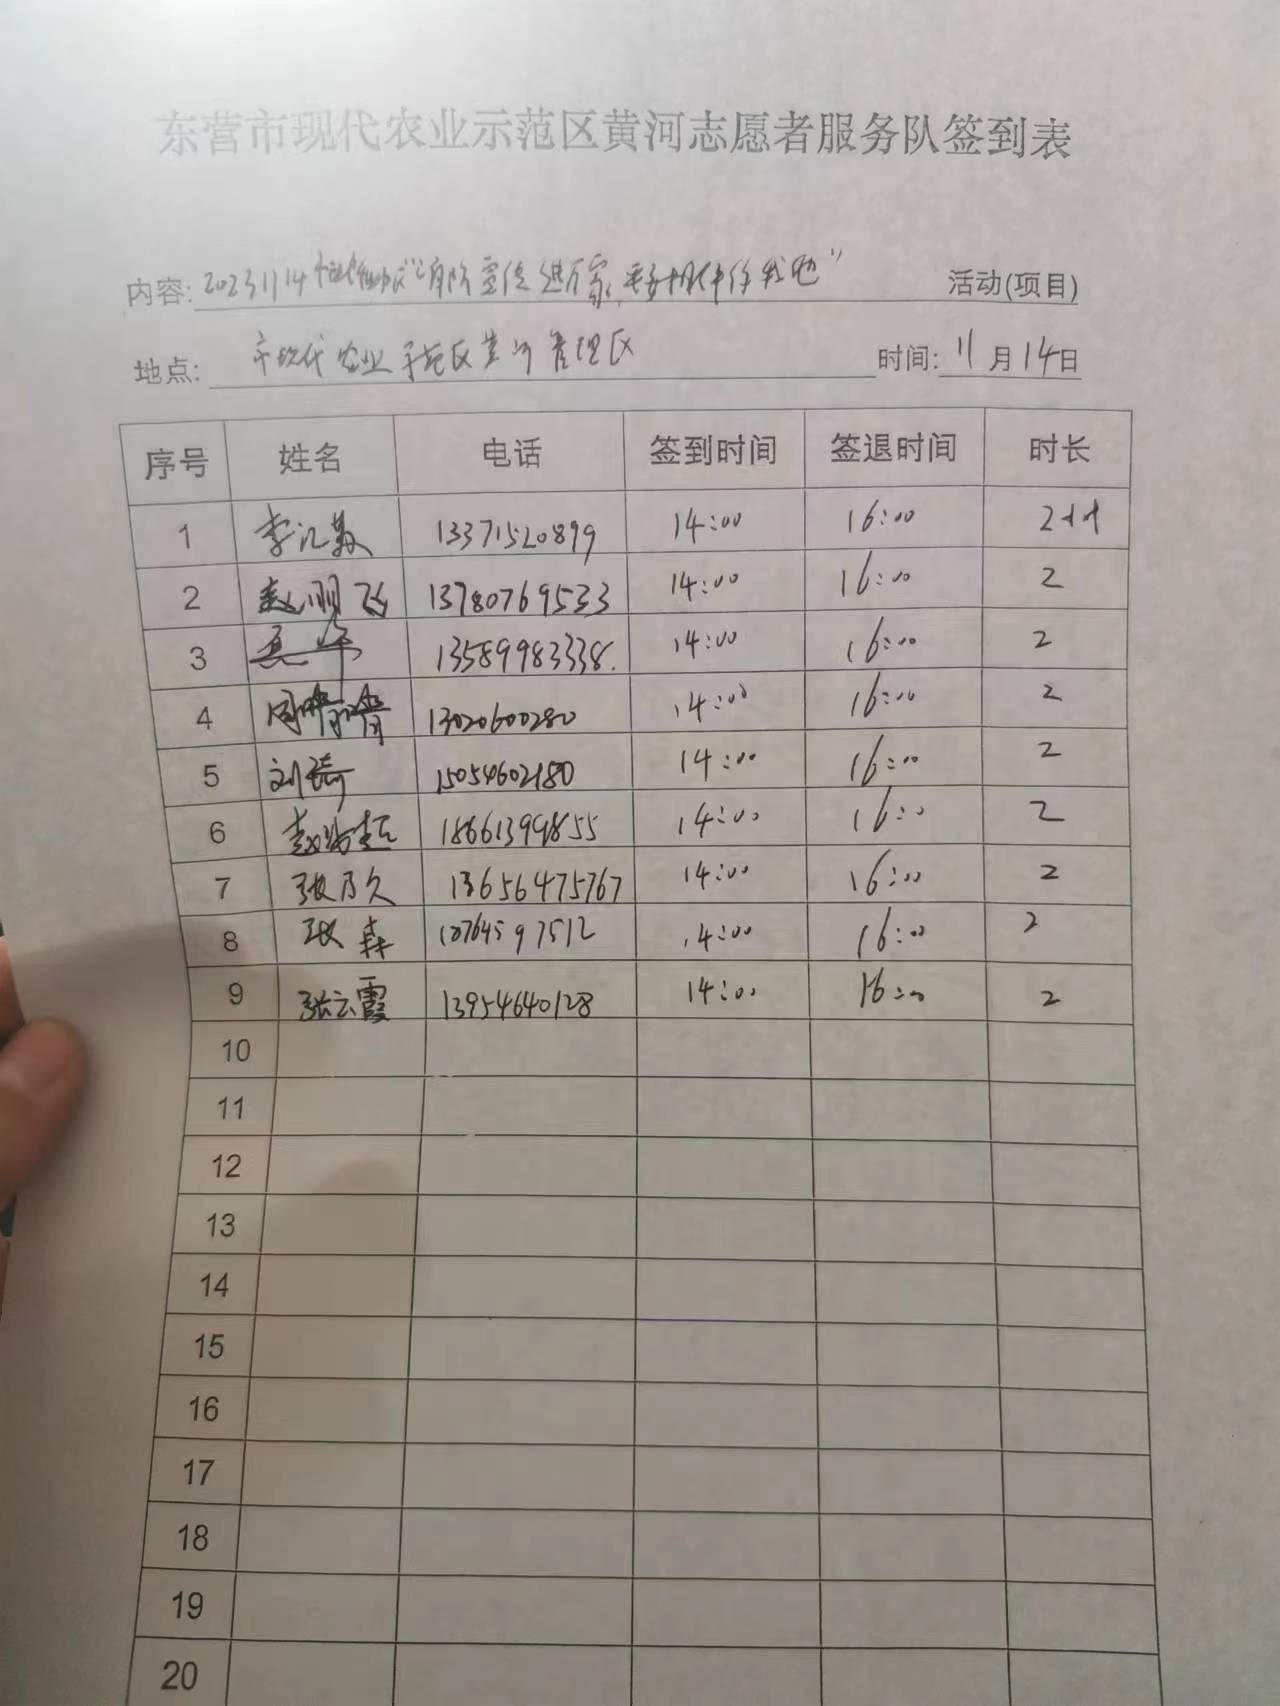 东营市现代农业示范区黄河志愿者服务队签到表
内容: 20231114 "消防宣传进万家, " 活动(项目)
地点: 市现代农业示范区黄河管理区 时间: 11月14日
序号 姓名 电话 签到时间 签退时间 时长
1 李汇 13371520899 14:00 16:00 2小时
2 赵明飞 13780769533 14:00 16:00 2
3 13589983338. 14:00 16:00 2
4 周 13020600280 14:00 16:00 2
5 刘琦 15054602180 14:00 16:00 2
6 赵 超 18661399855 14:00 16:00 2
7 张乃久 13656475767 14:00 16:00 2
8 张森 14:00 16:00 2
9 张云霞 13954640128 14:00 16:00 2
10
11
12
13
14
15
16
17
18
19
20